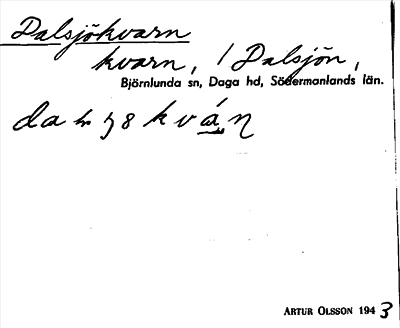 Dalsjökvarn
kvarn, / Dalsjön,
Björnlunda sn, Daga hd, Södermanlands län.
ARTUR OLSSON 1943